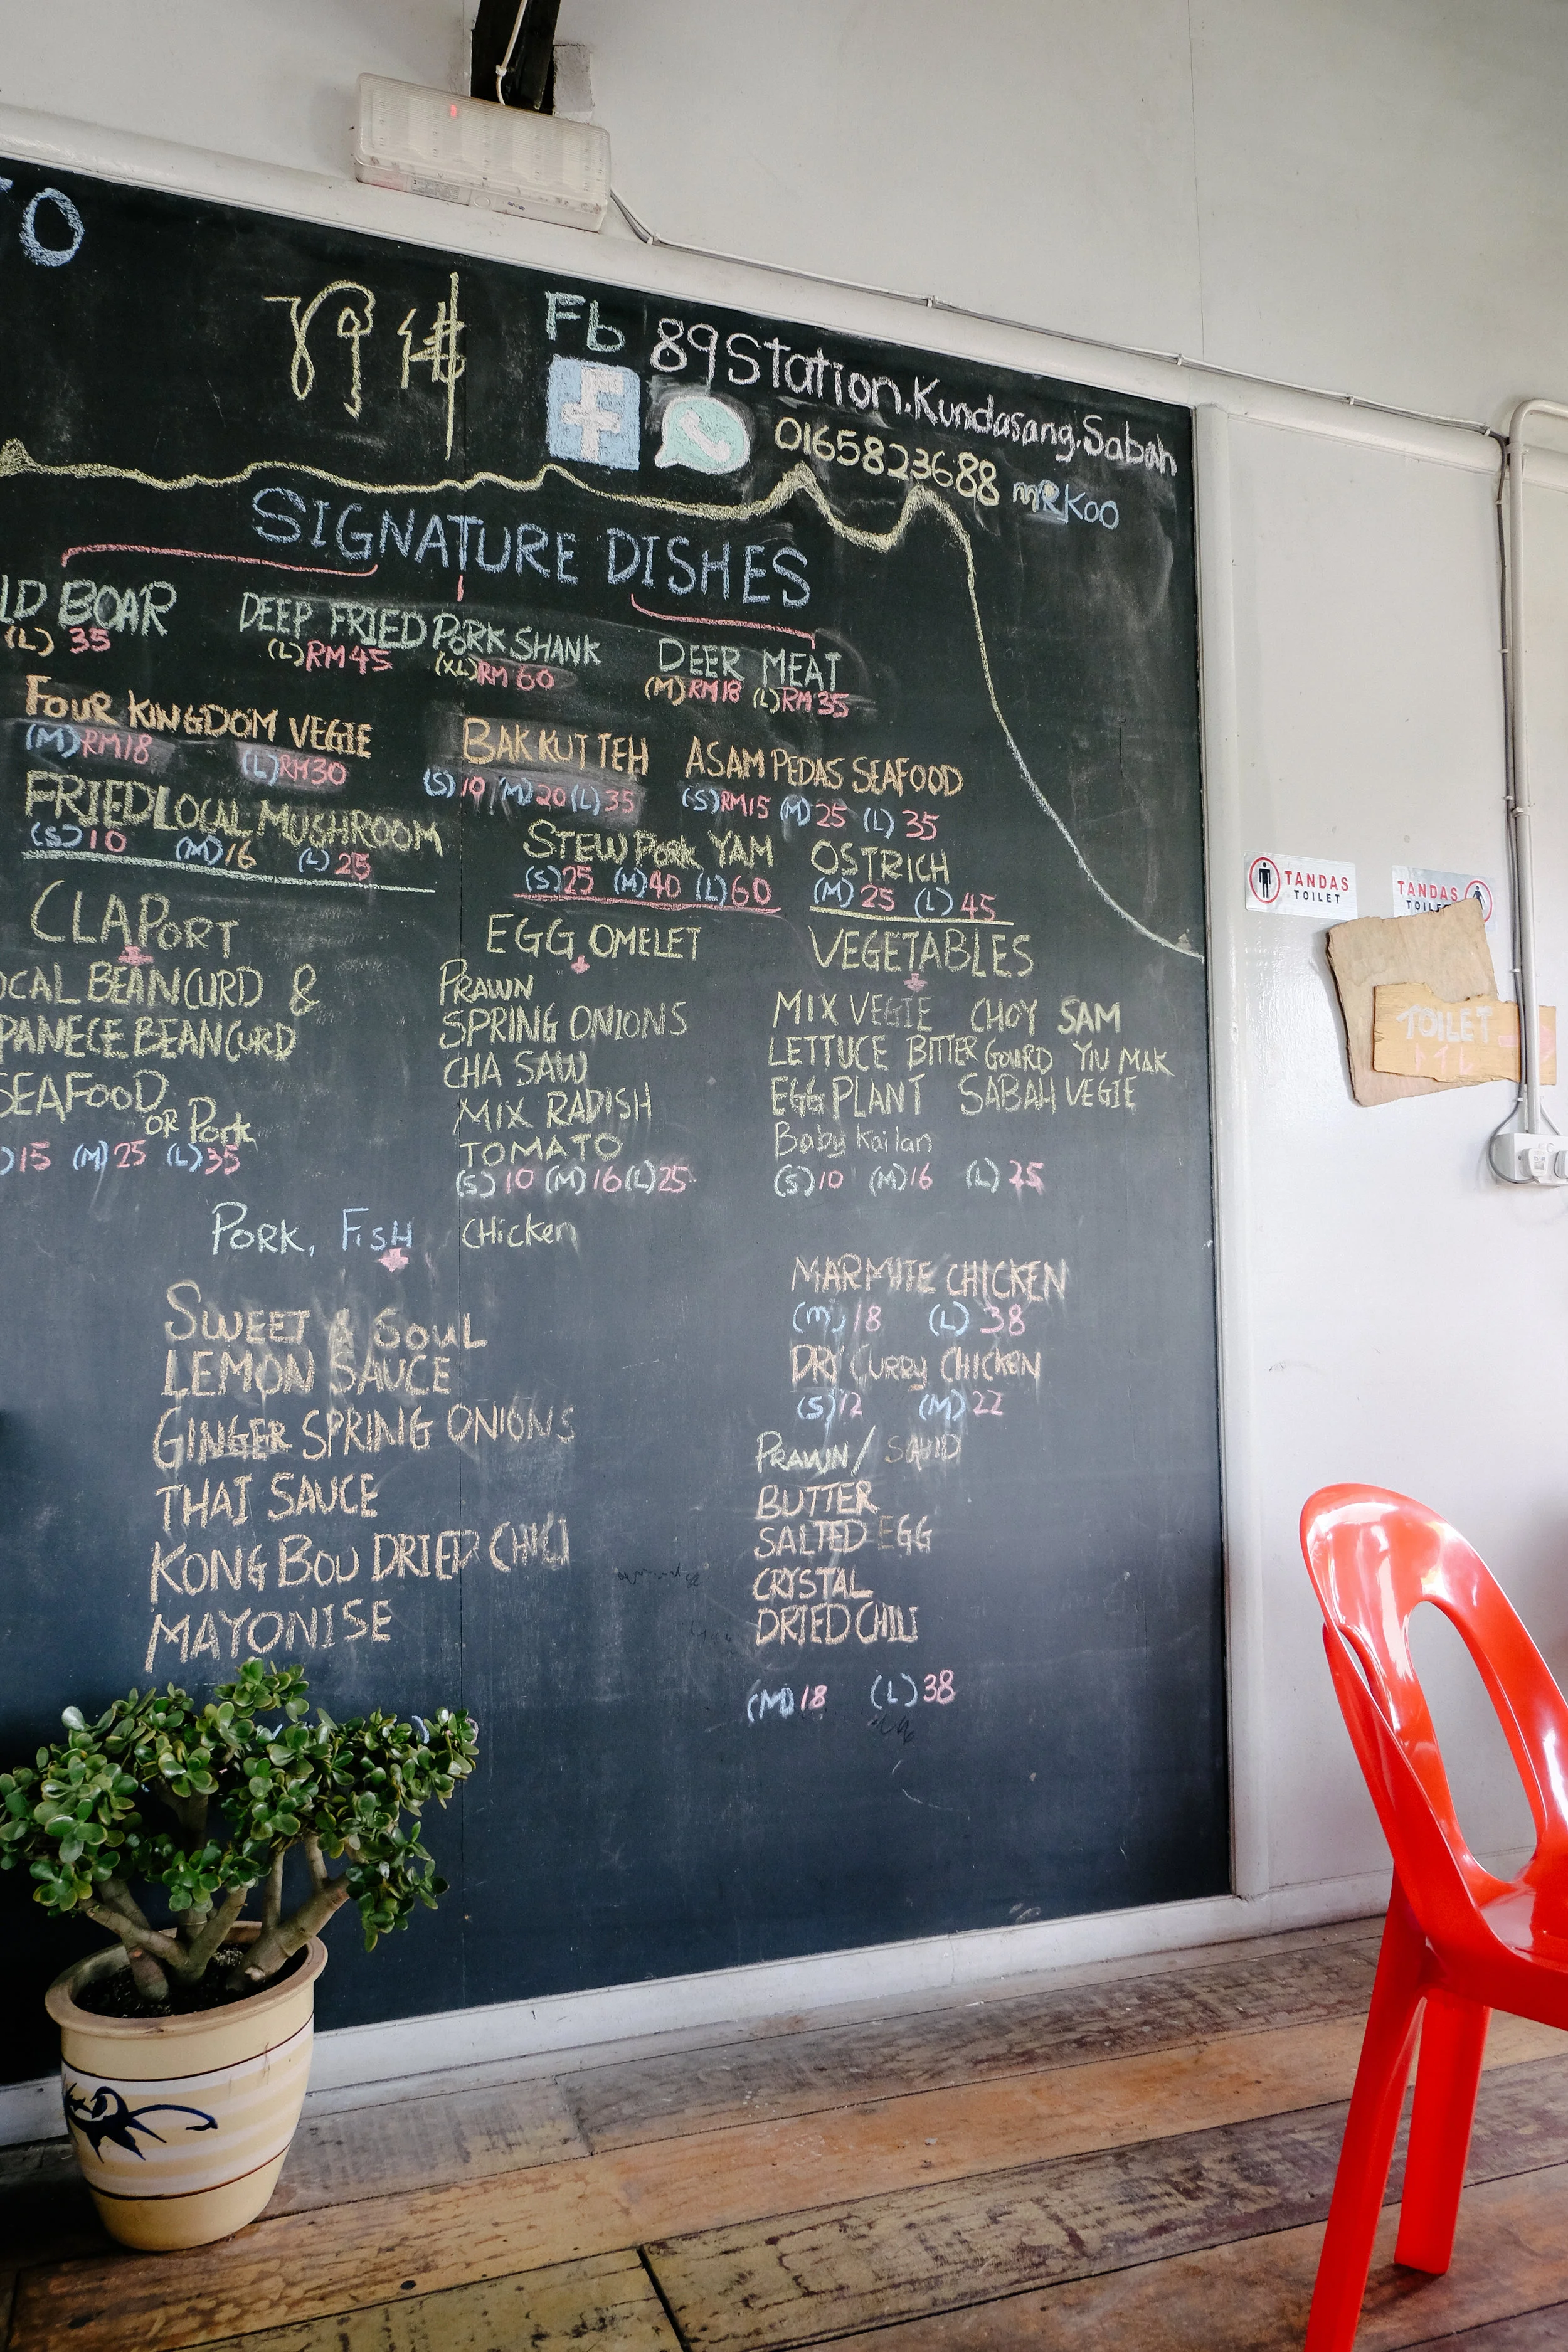 TO
阿佛
Fb 89Station.Kundasang.Sabah
0165823688 mRKoo
SIGNATURE DISHES
LD BOAR
(L) 35
DEEP FRIED PORK SHANK
(L)RM45 (XL)RM60
DEER MEAT
(M)RM18 (L)RM35
FOUR KINGDOM VEGIE
(M)RM18 (L)RM30
BAK KUT TEH
(S)10 (M)20 (L)35
ASAM PEDAS SEAFOOD
(S)RM15 (M)25 (L)35
FRIED LOCAL MUSHROOM
(S)10 (M)16 (L)25
STEW PORK YAM
(S)25 (M)40 (L)60
OSTRICH
(M)25 (L)45
CLAPORT
OCAL BEANCURD &
PANECE BEANCURD
SEAFOOD
OR Pork
)15 (M)25 (L)35
EGG OMELET
PRAWN
SPRING ONIONS
CHA SAW
MIX RADISH
TOMATO
(S)10 (M)16 (L)25
VEGETABLES
MIX VEGIE CHOY SAM
LETTUCE BITTER GOURD YIU MAK
EGG PLANT SABAH VEGIE
Baby Kailan
(S)10 (M)16 (L)25
PORK, FISH CHicken
SWEET & SOUL
LEMON SAUCE
GINGER SPRING ONIONS
THAI SAUCE
KONG BOU DRIED CHILI
MAYONISE
MARMITE CHICKEN
(M)18 (L)38
DRY CURRY CHICKEN
(S)12 (M)22
PRAWN/ SQUID
BUTTER
SALTED EGG
CRYSTAL
DRIED CHILI
(M)18 (L)38
TANDAS
TOILET
TANDAS
TOILE
TOILET